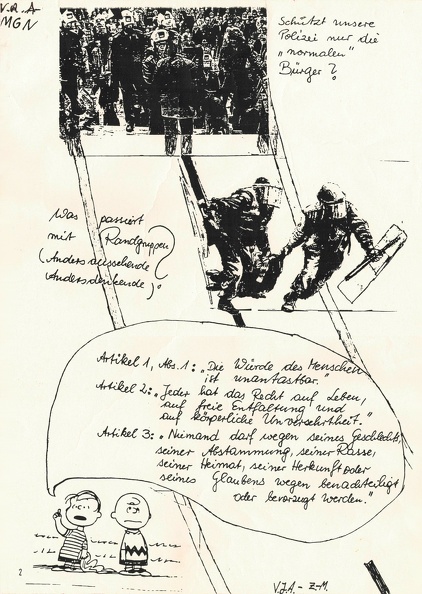 V.R.A-
MGN
Schützt unsere
Polizei nur die
„normalen"
Bürger?
Was passiert
mit Randgruppen
(Andersaussehende
Andersdenkende)?
Artikel 1, Abs. 1: „Die Würde des Menschen
ist unantastbar."
Artikel 2: „Jeder hat das Recht auf Leben,
auf freie Entfaltung und
auf körperliche Unversehrtheit."
Artikel 3: „Niemand darf wegen seines Geschlechts,
seiner Abstammung, seiner Rasse,
seiner Heimat, seiner Herkunft oder
seines Glaubens wegen benachteiligt
oder bevorzugt werden."
2
V.J.A. - Z-M.